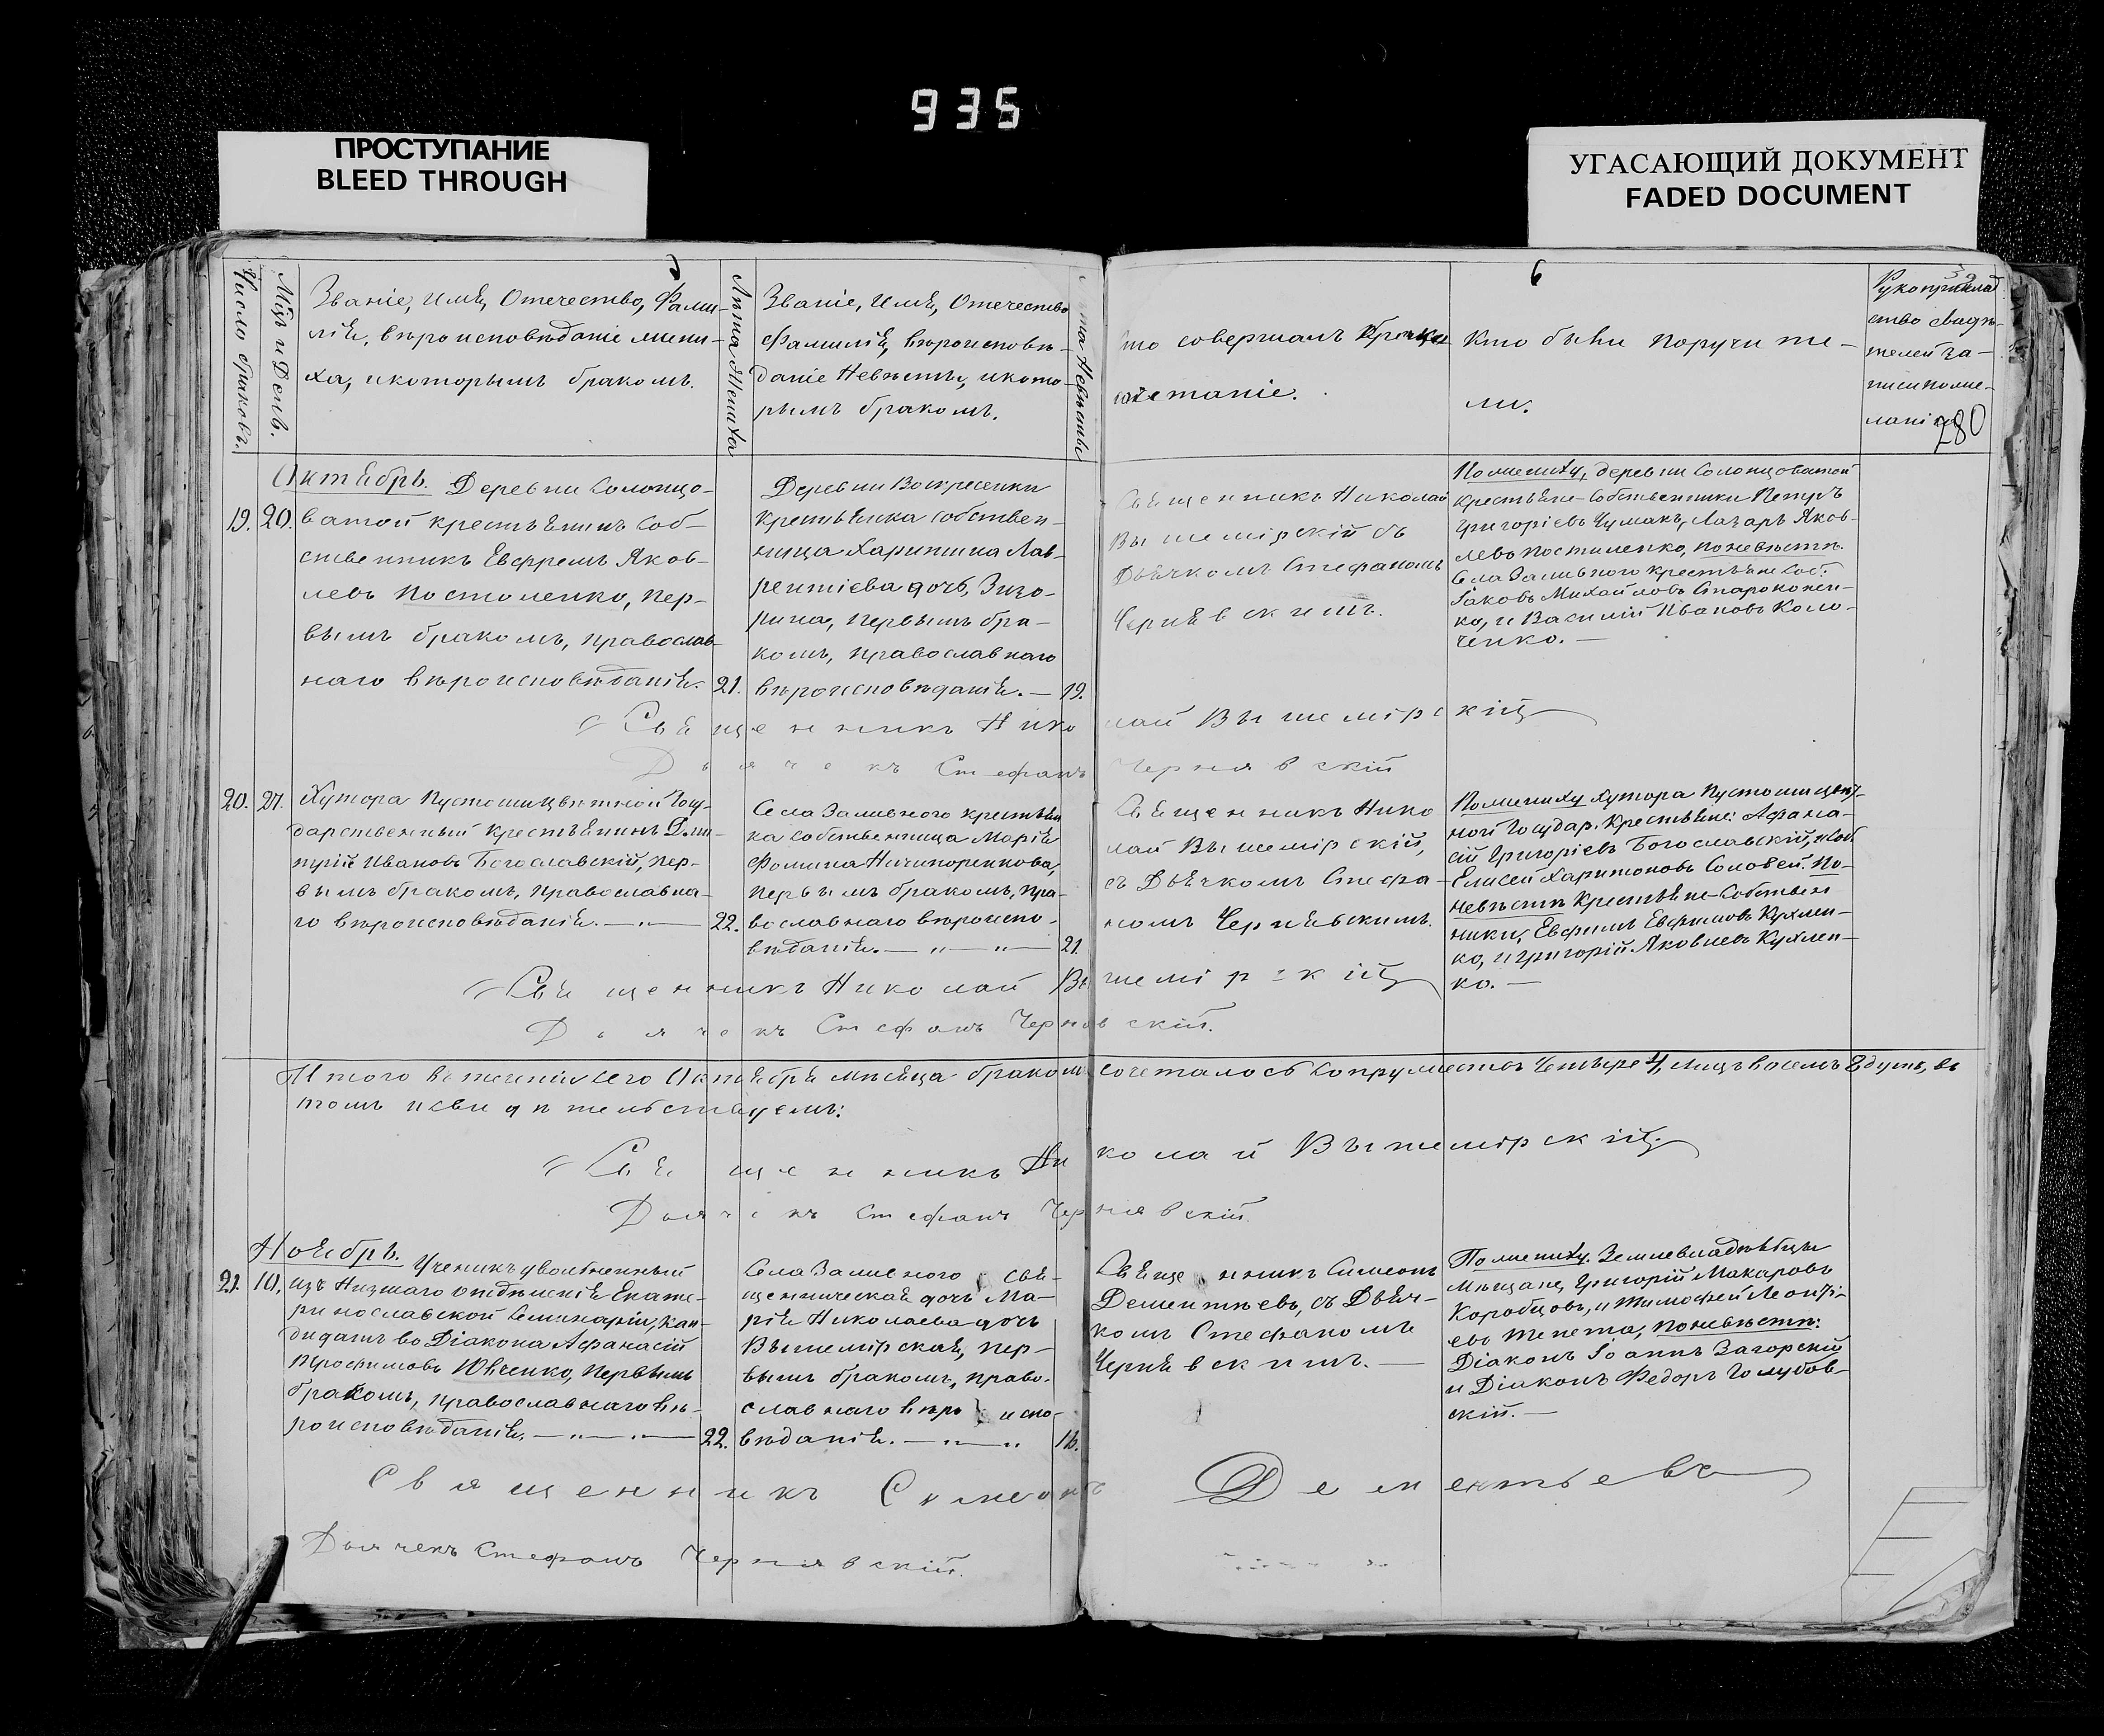 935
ПРОСТУПАНИЕ
BLEED THROUGH
УГАСАЮЩИЙ ДОКУМЕНТ
FADED DOCUMENT
Число браковъ.
Мѣцъ и День.
Званіе, Имя, Отечество, Фами-
лія, вѣроисповѣданіе жени-
ха, и которымъ бракомъ.
Лѣта Жениха
Званіе, Имя, Отечество
Фамилія, вѣроисповѣ-
даніе Невѣсты, и кото-
рымъ бракомъ.
та Невѣсты
6
то совершалъ
четаніе.
Кто были поручите-
ли.
ство свидѣ-
телей за-
писи по же-
ланію
280
Октябрь. Деревни Солонцо-
19. 20. ватой крестьянинъ Соб-
ственникъ Евфремъ Яков-
левъ Постоленко, пер-
вымъ бракомъ, православ-
наго вѣроисповѣданія. 21.
Деревни Воскресенки
крестьянка собствен-
ница Харитина Лав-
рентіева дочь, Зизо-
рина, первымъ бра-
комъ, православнаго
вѣроисповѣданія. — 19.
Священникъ Николай
Вышемірскій съ
Дьячкомъ Стефаномъ
Чернявскимъ.
По жениху, деревни Солонцоватой
крестьяне-собственники Петръ
Григоріевъ Чумакъ, Лазарь Яков-
левъ Постиленко, по невѣстѣ.
Села Заливного крестьяне Соб.
Іаковъ Михайловъ Старокожен-
ко, и Василій Ивановъ Коло-
ченко. —
Священникъ Николай Вышемірскій
Дьячекъ Стефанъ Чернявскій
20. 27. Хутора Пустошицвѣтной Госу-
дарственный крестьянинъ Дми-
трій Ивановъ Богославскій, пер-
вымъ бракомъ, православна-
го вѣроисповѣданія. — " — 22.
Села Заливного крестьян
ка собственница Марія
Фомина Ничипоренкова,
первымъ бракомъ, пра-
вославнаго вѣроиспо-
вѣданія. — " — " — 21.
Священникъ Нико
лай Вышемірскій,
съ Дьячкомъ Стефа-
номъ Чернявскимъ.
По жениху хутора Пустошицвѣт-
ной Государ. Крестьяне: Афана-
сій Григоріевъ Богославскій, и Соб.
Елисей Харитоновъ Соловей. По-
невѣстѣ Крестьяне-Собствен
ники, Евфимъ Евфимовъ Кухлен-
ко, и Григорій Яковлевъ Кухлен-
ко. —
Священникъ Николай Вышемірскій
Дьячекъ Стефанъ Чернявскій.
Итого въ теченіи сего Октября мѣсяца бракомъ сочеталось супружествъ четыре 4, лицъ восемь 8 душъ, въ
томъ и свидѣтельствуемъ:
Священникъ Николай Вышемірскій.
Дьячекъ Стефанъ Чернявскій.
Ноябрь. Ученикъ уволенный
21. 10. изъ Низшаго отдѣленія Екате-
ринославской Семинаріи, кан-
дидатъ во Діакона Афанасій
Трофимовъ Ювченко, первымъ
бракомъ, православнаго вѣ-
роисповѣданія. — " — " — 22.
Села Заливного свя-
щенническая дочь Ма-
рія Николаева дочь
Вышемірская, пер-
вымъ бракомъ, право-
славнаго вѣроиспо-
вѣданія. — " — " 16.
Священникъ Симеонъ
Дементьевъ, съ Дьяч-
комъ Стефаномъ
Чернявскимъ. —
По жениху. Землевладѣльцы
Мѣщане, Григорій Макаровъ
Коробцовъ, и Тимофей Леонті-
евъ Тепета, по невѣстѣ:
Діаконъ Іоаннъ Загорскій
и Діаконъ Федоръ Голубов-
скій. —
Священникъ Симеонъ Дементьевъ
Дьячекъ Стефанъ Чернявскій.